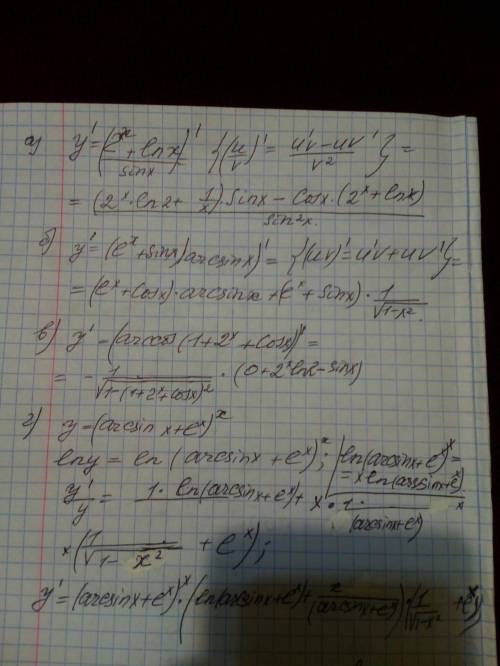 а) y' = ((e^x + ln x)/sin x)' {(u/v)' = (u'v - uv')/v²} =
= ((2^x · ln 2 + 1/x) · sin x - cos x · (2^x + ln x))/sin²x.
б) y' = (e^x + sin x) arcsin x)' = {(uv)' = u'v + uv'} =
= (e^x + cos x) · arcsin x + (e^x + sin x) · 1/√(1-x²).
в) y' = (arccos (1 + 2^x + cos x))' =
= - 1/√(1-(1+2^x+cos x)²) · (0 + 2^x ln 2 - sin x)
г) y = (arcsin x + e^x)^x
ln y = ln (arcsin x + e^x)^x; | ln(arcsin x + e^x)^x =
= x ln(arcsin x + e^x)
y'/y = 1 · ln(arcsin x + e^x) + x · 1/(arcsin x + e^x) ×
× (1/√(1-x²) + e^x);
y' = (arcsin x + e^x)^x · (ln(arcsin x + e^x) + x/(arcsin x + e^x)) · (1/√(1-x²) + e^x)